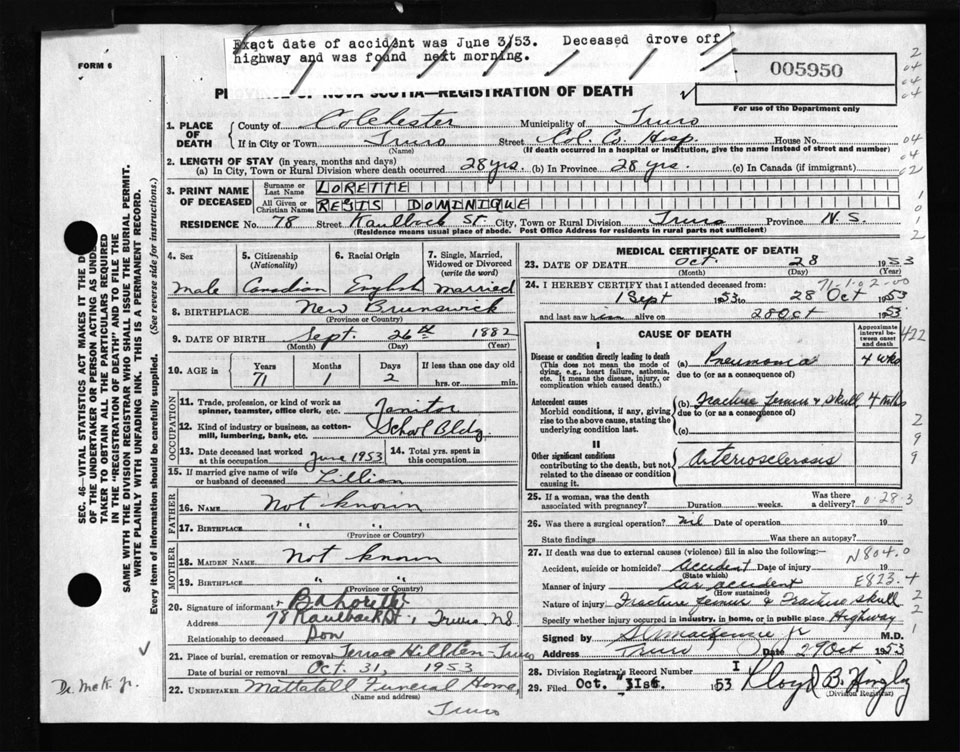 Exact date of accident was June 3/53. Deceased drove off
highway and was found next morning.
FORM 6
005950
NOVA SCOTIA—REGISTRATION OF DEATH
For use of the Department only
1. PLACE OF DEATH
County of Colchester Municipality of Truro
If in City or Town Truro Street Col. Co. Hosp. House No.
(Name) (If death occurred in a hospital or institution, give the name instead of street and number)
2. LENGTH OF STAY (in years, months and days)
(a) In City, Town or Rural Division where death occurred 28 yrs. (b) In Province 28 yrs. (c) In Canada (if immigrant)
3. PRINT NAME OF DECEASED
Surname or Last Name LORETTE
All Given or Christian Names REGIS DOMINIQUE
RESIDENCE No. 78 Street Kaulback St. City, Town or Rural Division Truro Province N.S.
(Residence means usual place of abode. Post Office Address for residents in rural parts not sufficient)
4. Sex
Male
5. Citizenship (Nationality)
Canadian
6. Racial Origin
English
7. Single, Married, Widowed or Divorced (write the word)
Married
8. BIRTHPLACE New Brunswick
(Province or Country)
9. DATE OF BIRTH Sept. 26th 1882
(Month) (Day) (Year)
10. AGE in Years Months Days If less than one day old
71 1 2 hrs. or min.
OCCUPATION
11. Trade, profession, or kind of work as spinner, teamster, office clerk, etc. Janitor
12. Kind of industry or business, as cotton-mill, lumbering, bank, etc. School Bldg.
13. Date deceased last worked at this occupation June 1953
14. Total yrs. spent in this occupation
15. If married give name of wife or husband of deceased Lillian
FATHER
16. NAME Not known
17. BIRTHPLACE " "
(Province or Country)
MOTHER
18. MAIDEN NAME Not known
19. BIRTHPLACE " "
(Province or Country)
20. Signature of informant
Address 78 Kaulback St., Truro NS
Relationship to deceased Son
21. Place of burial, cremation or removal Terrace Hill Truro
Date of burial or removal Oct. 31, 1953
22. UNDERTAKER Mattatall Funeral Home,
(Name and address)
Truro
MEDICAL CERTIFICATE OF DEATH
23. DATE OF DEATH Oct. 28 1953
(Month) (Day)
71-1-02-00
24. I HEREBY CERTIFY that I attended deceased from
1 Sept 1953 to 28 Oct 1953
and last saw him alive on 28 Oct 1953
CAUSE OF DEATH
Approximate interval between onset and death
422
I
Disease or condition directly leading to death
(This does not mean the mode of dying, e.g., heart failure, asthenia, etc. It means the disease, injury, or complication which caused death.)
(a) Pneumonia 4 wks
due to (or as a consequence of)
Antecedent causes
Morbid conditions, if any, giving rise to the above cause, stating the underlying condition last.
(b) Fracture femur & skull 4 mths
due to (or as a consequence of)
(c)
II
Other significant conditions
contributing to the death, but not related to the disease or condition causing it.
Arteriosclerosis
25. If a woman, was the death associated with pregnancy? Duration weeks. Was there a delivery?
0-28-3
26. Was there a surgical operation? nil Date of operation 19
State findings Was there an autopsy?
27. If death was due to external causes (violence) fill in also the following:—
N804.0
Accident, suicide or homicide? Accident Date of injury 19
(State which)
E823.4
Manner of injury Car accident
(How sustained)
Nature of injury Fracture femur & Fracture skull
Specify whether injury occurred in industry, in home, or in public place Highway
Signed by M.D.
Address Truro Date 29 Oct 1953
28. Division Registrar's Record Number
29. Filed Oct. 31st. 1953 Lloyd B.
(Division Registrar)
SEC. 46—VITAL STATISTICS ACT MAKES IT THE
OF THE UNDERTAKER OR PERSON ACTING AS UNDE
TAKER TO OBTAIN ALL THE PARTICULARS REQUIRED
IN THE "REGISTRATION OF DEATH" AND TO FILE THE
SAME WITH THE DIVISION REGISTRAR WHO SHALL ISSUE THE BURIAL PERMIT.
WRITE PLAINLY WITH UNFADING INK. THIS IS A PERMANENT RECORD.
Every item of information should be carefully supplied. (See reverse side for instructions.)
Dr. McK. Jr.